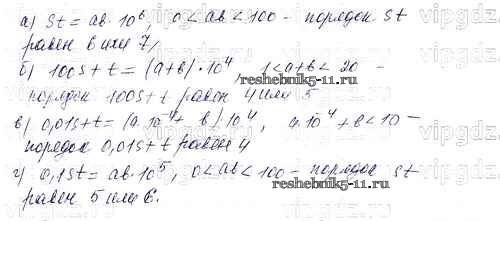 а) st = ab·10⁶ 0 < ab < 100 - порядок st
равен 6 или 7,
б) 100s + t = (a+b)·10⁴, 1 < a+b < 20 -
порядок 100s + t равен 4 или 5
в) 0,01s + t = (a·10⁻⁴ + b)·10⁴, a·10⁻⁴ + b < 10 -
порядок 0,01s + t равен 4
г) 0,1st = ab·10⁵, 0 < ab < 100 - порядок st
равен 5 или 6.
reshebnik5-11.ru
reshebnik5-11.ru